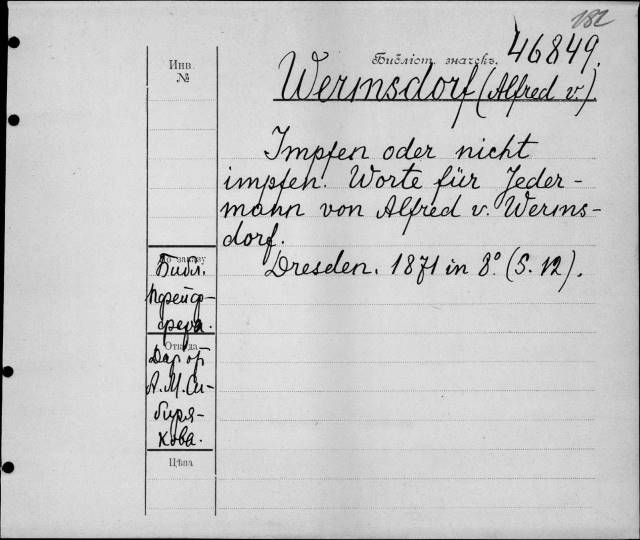 182
Библіот. значекъ. 46849.
Инв.
№
Wermsdorf (Alfred v.)
Impfen oder nicht
impfen. Worte für Jeder-
mann von Alfred v. Werms-
dorf.
Dresden. 1871 in 8° (S. 12).
заказу
Библ.
Пфейф-
фера.
Откуда
Дар от
А. М. Си-
биря-
кова.
Цѣна